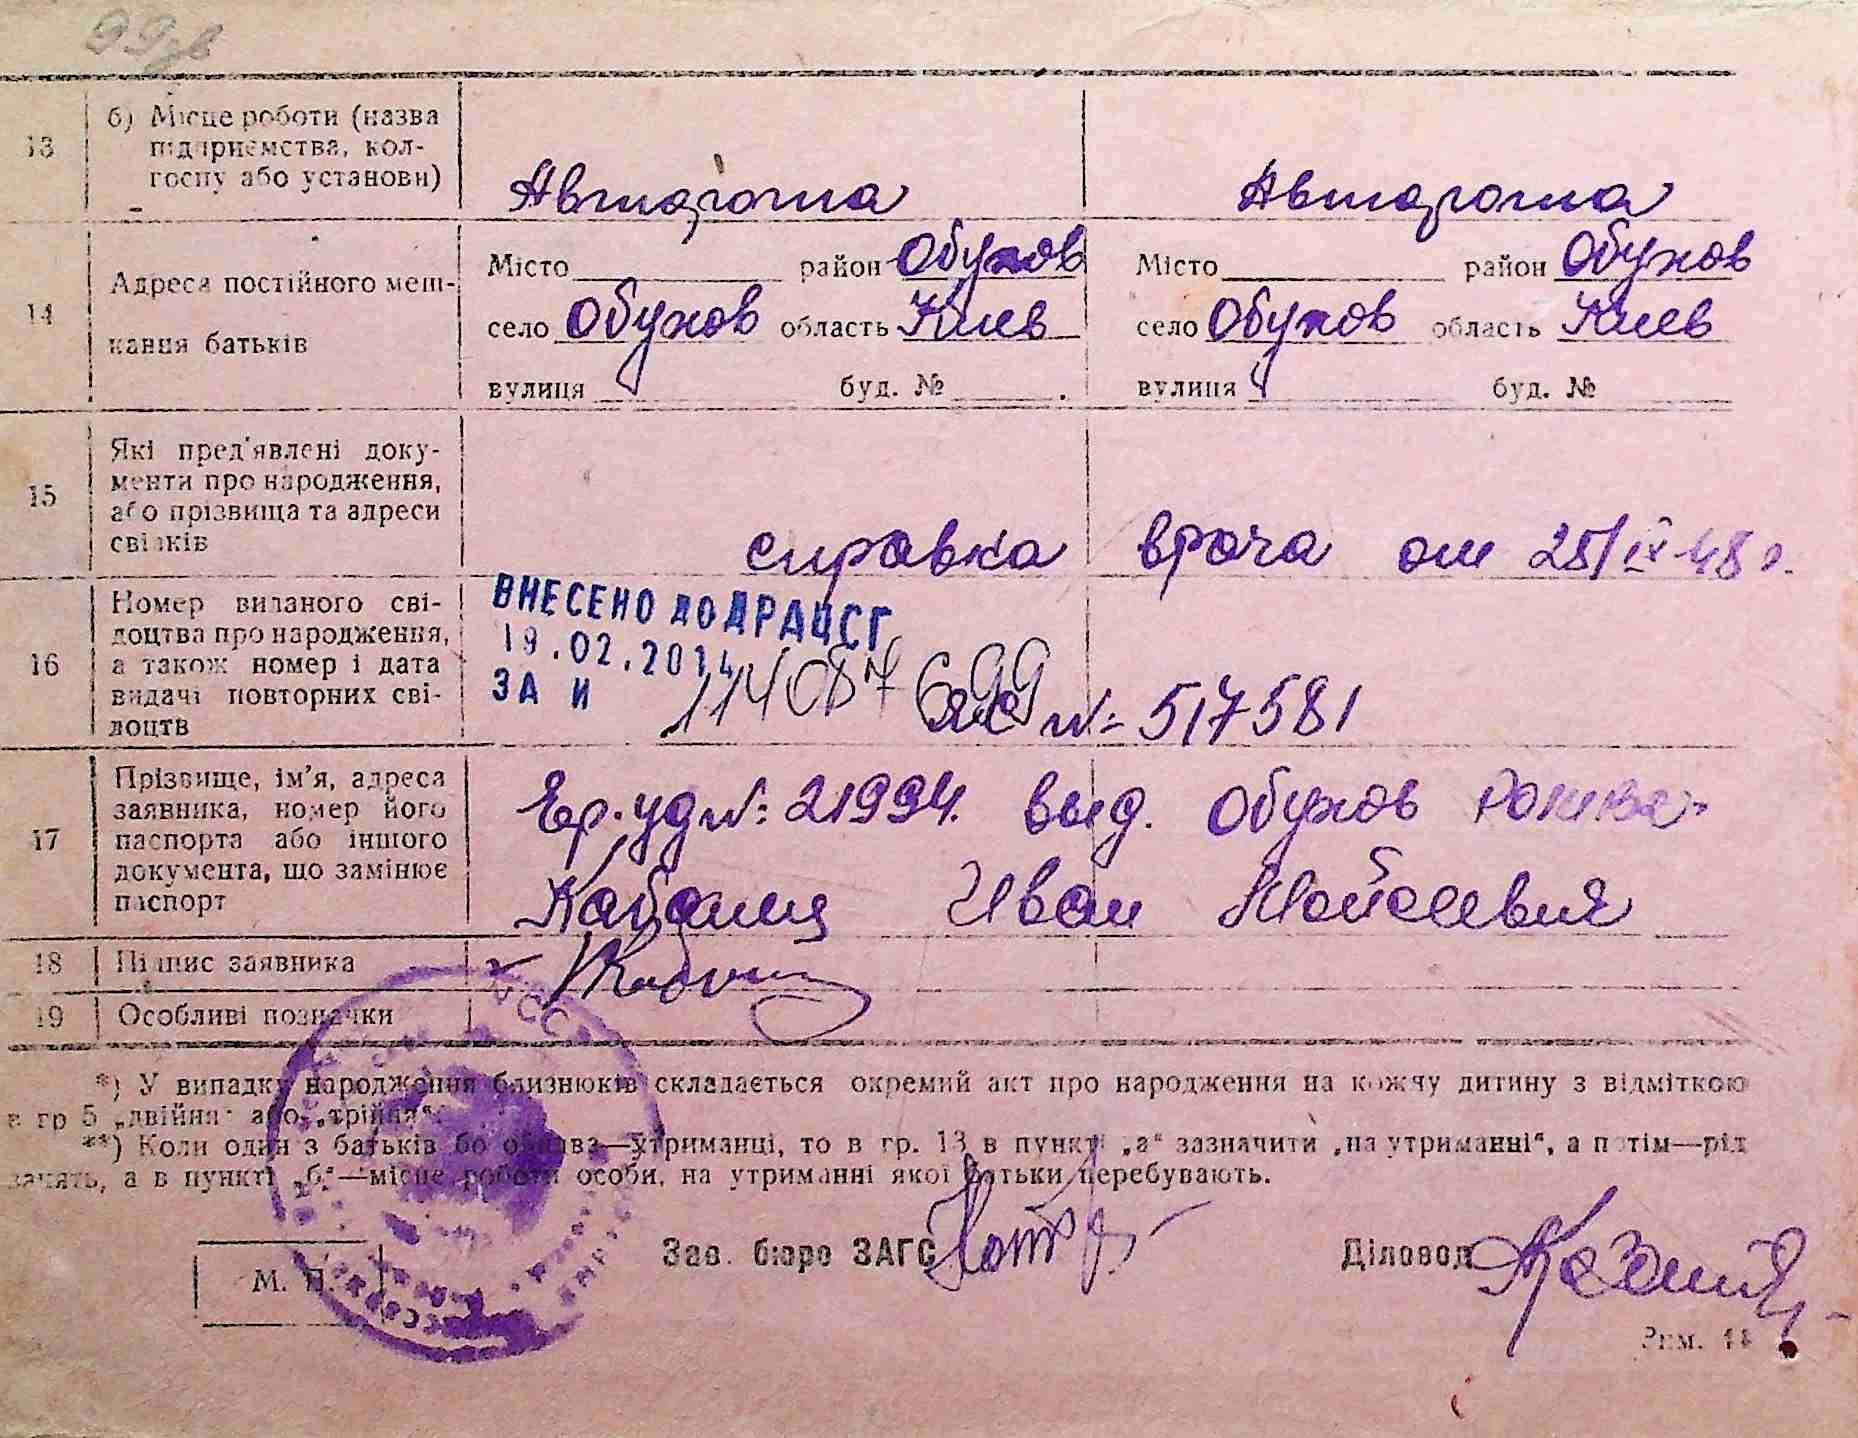 99зв
13 б) Місце роботи (назва
підприємства, кол-
госпу або установи)
14 Адреса постійного меш-
кання батьків
Місто район Обухов Місто район Обухов
село Обухов область Киев село Обухов область Киев
вулиця буд. № вулиця буд. №
15 Які пред'явлені доку-
менти про народження,
або прізвища та адреси
свідків
справка врача от 25/IX 48 г.
16 Номер виданого сві-
доцтва про народження,
а також номер і дата
видачі повторних сві-
доцтв
ВНЕСЕНО ДО ДРАЦСГ
19.02.2014
ЗА И 114087699
№ 517581
17 Прізвище, ім'я, адреса
заявника, номер його
паспорта або іншого
документа, що замінює
паспорт
уд №: 21994. выд. Обухов
Иван Мойсеевич
18 Підпис заявника
19 Особливі позначки
*) У випадку народження близнюків складається окремий акт про народження на кожну дитину з відміткою
в гр 5 „двійня" або „трійня".
**) Коли один з батьків або обидва—утриманці, то в гр. 13 в пункті „а" зазначити „на утриманні", а потім—рід
занять, а в пункті „б"—місце роботи особи, на утриманні якої батьки перебувають.
М. П.
Зав. бюро ЗАГС
Діловод